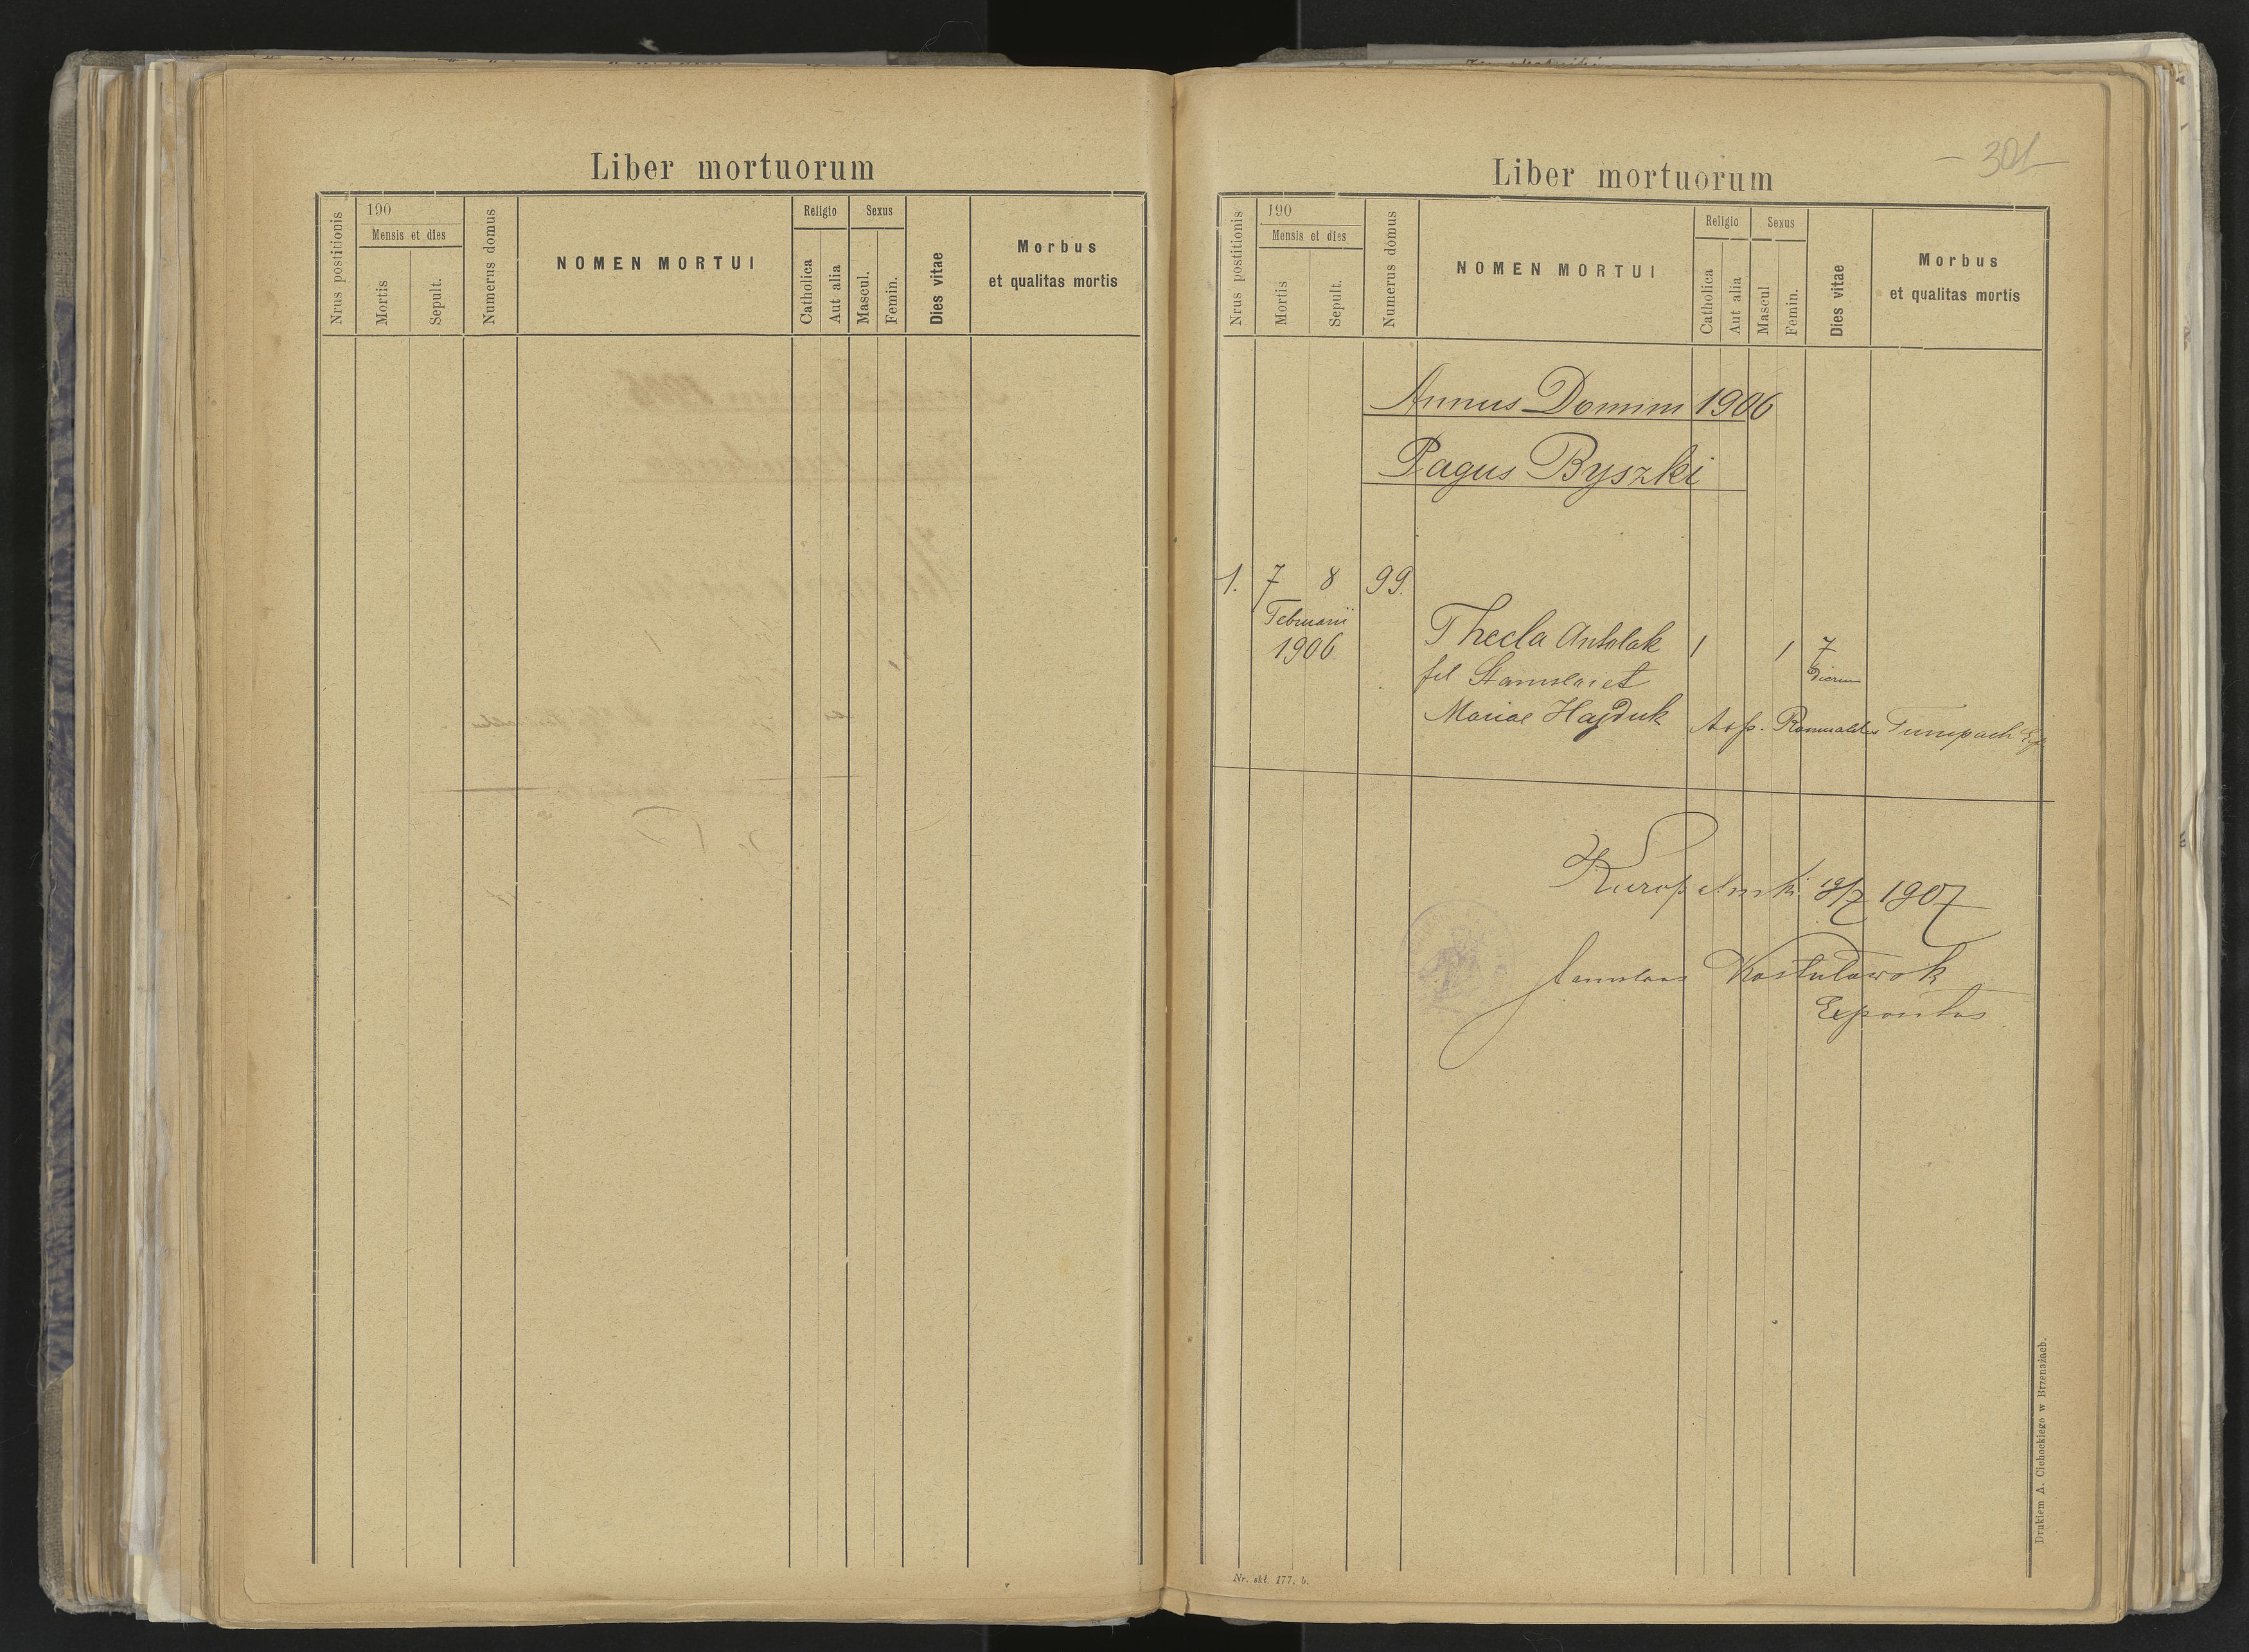 Liber mortuorum
Nrus postitionis
190
Mensis et dies
Mortis
Sepult.
Numerus domus
NOMEN MORTUI
Religio
Catholica
Aut alia
Sexus
Mascul.
Femin.
Dies vitae
Morbus
et qualitas mortis
301
Liber mortuorum
Nrus postitionis
190
Mensis et dies
Mortis
Sepult.
Numerus domus
NOMEN MORTUI
Religio
Catholica
Aut alia
Sexus
Mascul
Femin.
Dies vitae
Morbus
et qualitas mortis
Annus Domini 1906
Pagus Byszki
1. 7 8 99.
Februarii
1906
Thecla Antolak 1 1 7
fil Stanislai et Dierum
Mariae Hajduk Romualdus
1907
Stanislaus
Expositus
Drukiem A. Cichockiego w Brzeżanach.
Nr. skł. 177. b.